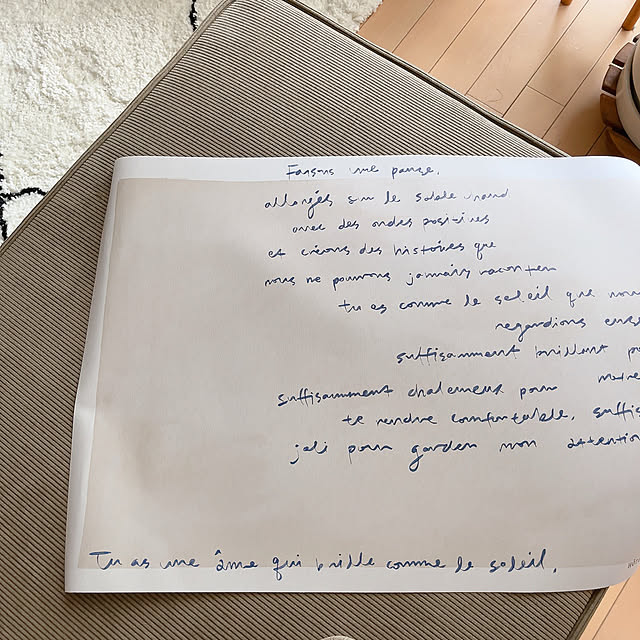 Faisons une pause.
allongés sur le sable chaud
avec des ondes positives
et créons des histoires que
nous ne pourrons jamais raconter
tu es comme le soleil que nous
regardions
suffisamment brillant
suffisamment chaleureux pour
te rendre comfortable,
joli pour garder mon attention
Tu as une âme qui brille comme le soleil.